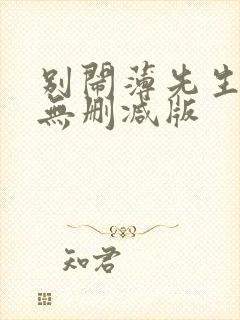 别鬧薄先生
無刪减版
知君